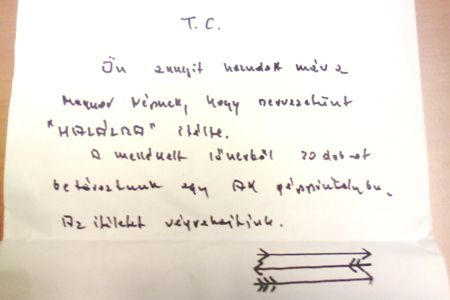 T. C.
Ön annyit hazudott már a
Magyar Népnek, hogy szervezetünk
"HALÁLRA" ítélte.
A mellékelt lőszerből 20 dobot
betáraztunk egy AK géppisztolyba.
Az ítéletet végrehajtjuk.